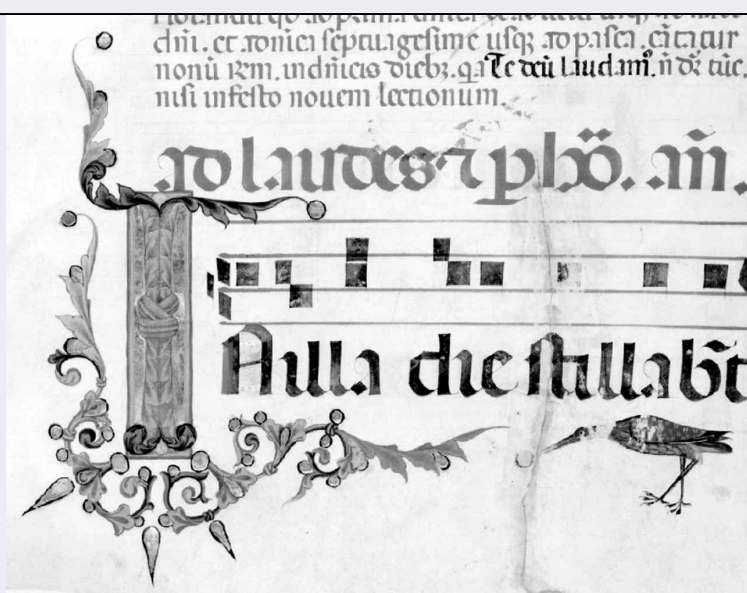 dñi. et septuagesime usqꝫ ad pasca. cātatur
nonū ℞m. in dñicis diebꝫ. qa Te deū laudam᷒. ñ dr̄ tūc.
nisi in festo nouem lectionum.
ad laudes ⁊ p hō. añ.
IN illa die stillabt̄